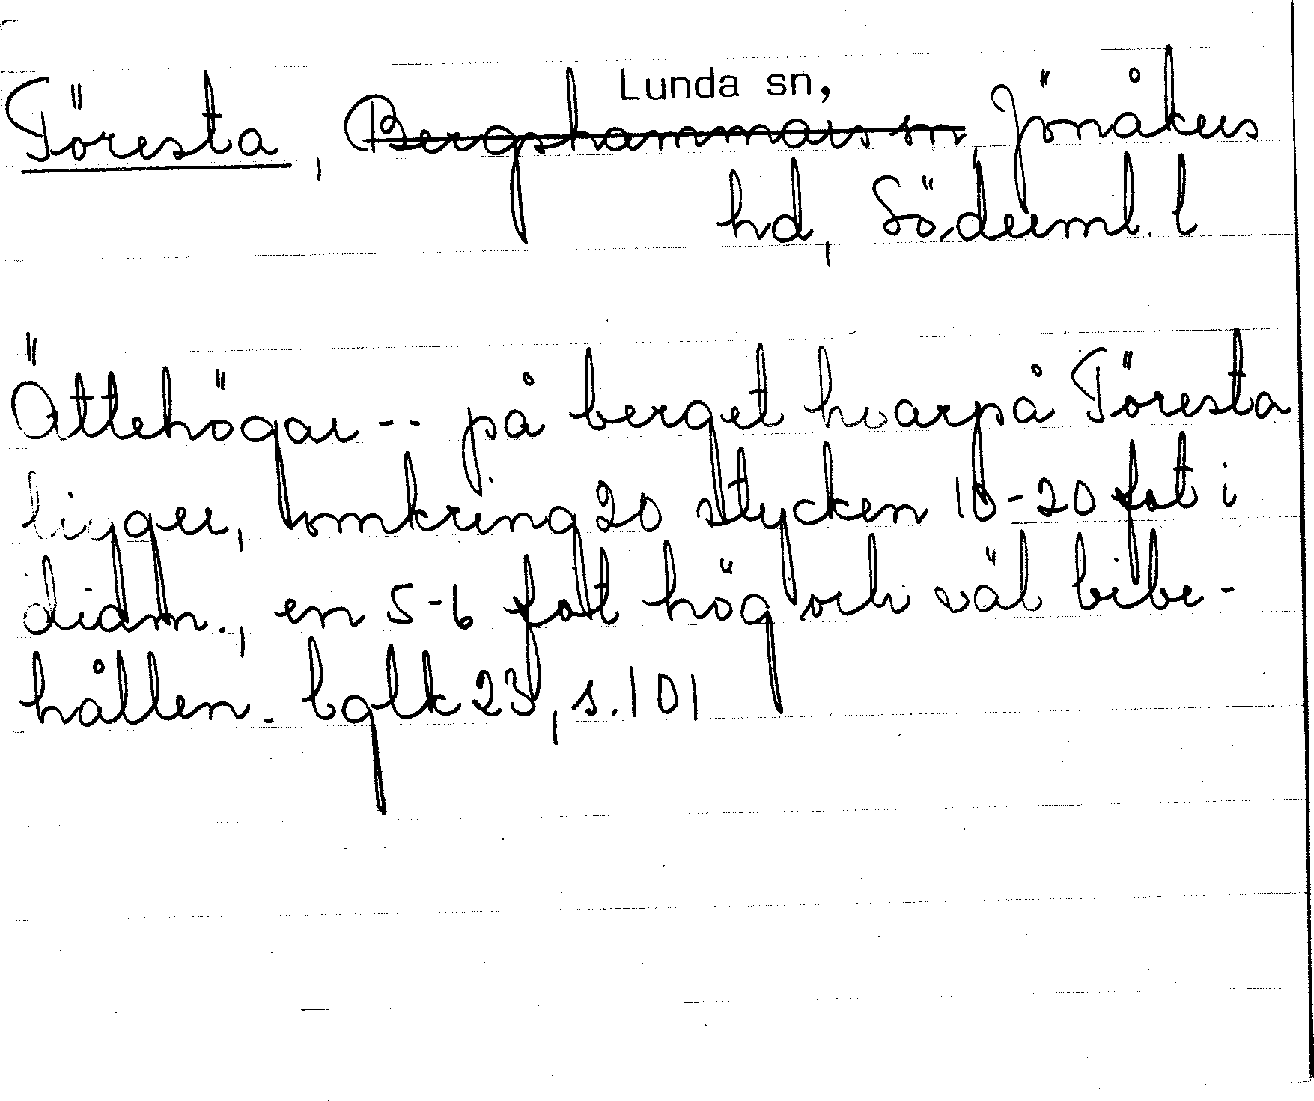 Lunda sn,
Töresta, Bergshammars sn, Jönåkers
hd, Söderml. l
Ättehögar -- på berget hvarpå Töresta
ligger, omkring 20 stycken 10-20 fot i
diam., en 5-6 fot hög och väl bibe-
hållen. bglk 23, s. 101